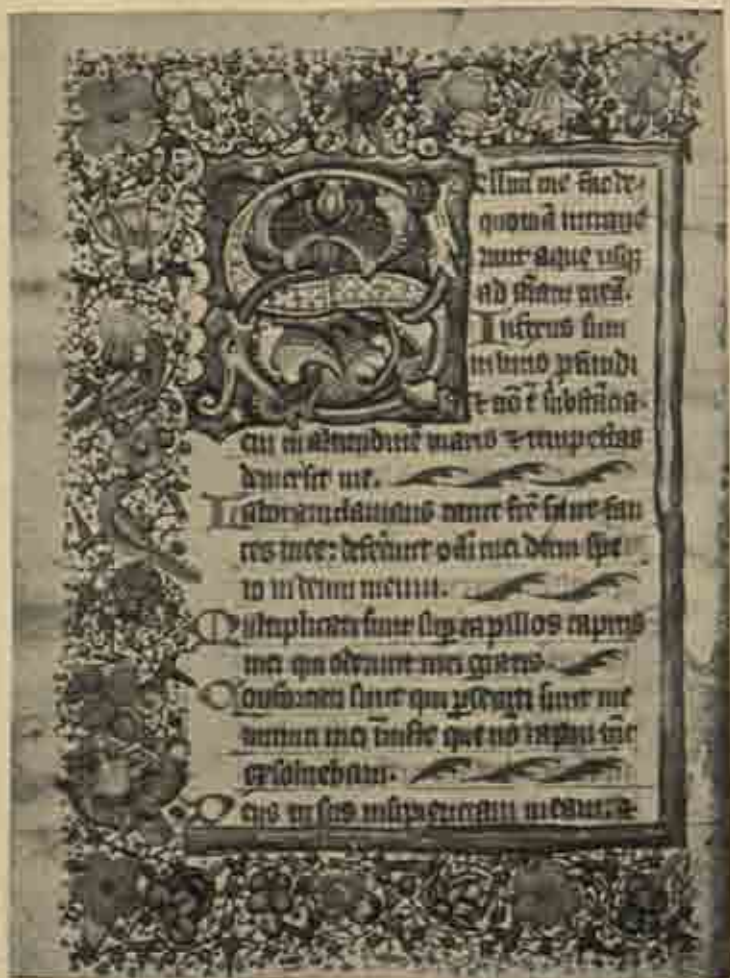 S aluū me fac de⸗
quoniā intraue
runt aque usq₃
ad aīam meā.
Infixus sum
in limo ꝓfundi
⁊ nō ē substācia.
eni in altitudinē maris ⁊ tempestas
demersit me.
Laboraui clamans rauce fcē sunt fau
ces mee: defecerunt oc̄li mei dum spe
ro in deum meum.
Multiplicati sunt suꝑ capillos capitis
mei qui oderunt me gratis.
Confortati sunt qui ꝑsecuti sunt me
inimici mei iniuste que nō rapui tūc
exsoluebam.
Deus tu scis insipienciam meam: ⁊